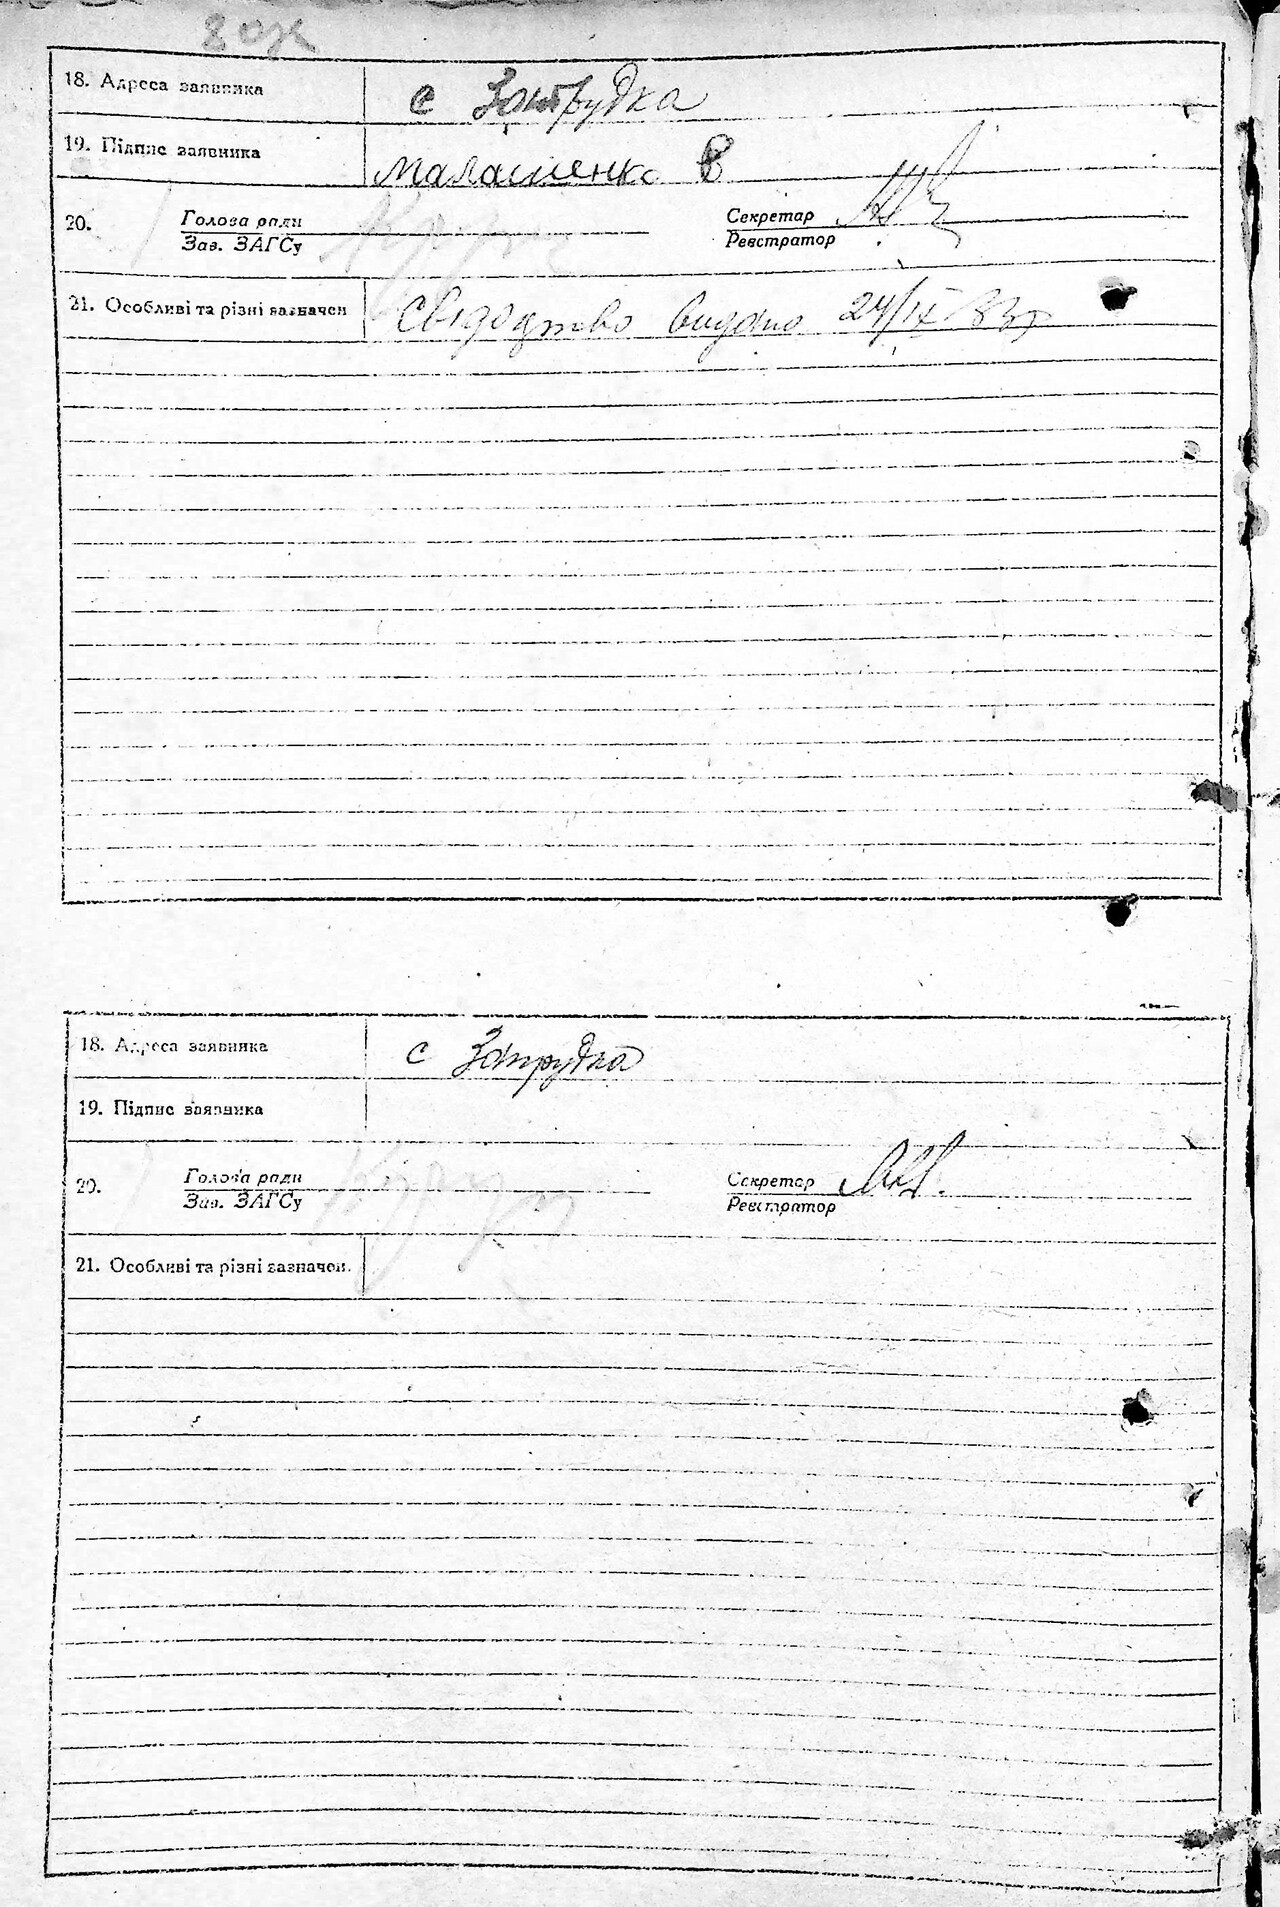 18. Адреса заявника с Запрудка
19. Підпис заявника Малашенко В
20. Голова ради Секретар
Зав. ЗАГСу Реєстратор
21. Особливі та різні зазначен Свідоцтво видано 24/IX 33р
18. Адреса заявника с Запрудка
19. Підпис заявника
20. Голова ради Секретар
Зав. ЗАГСу Реєстратор
21. Особливі та різні зазначен.